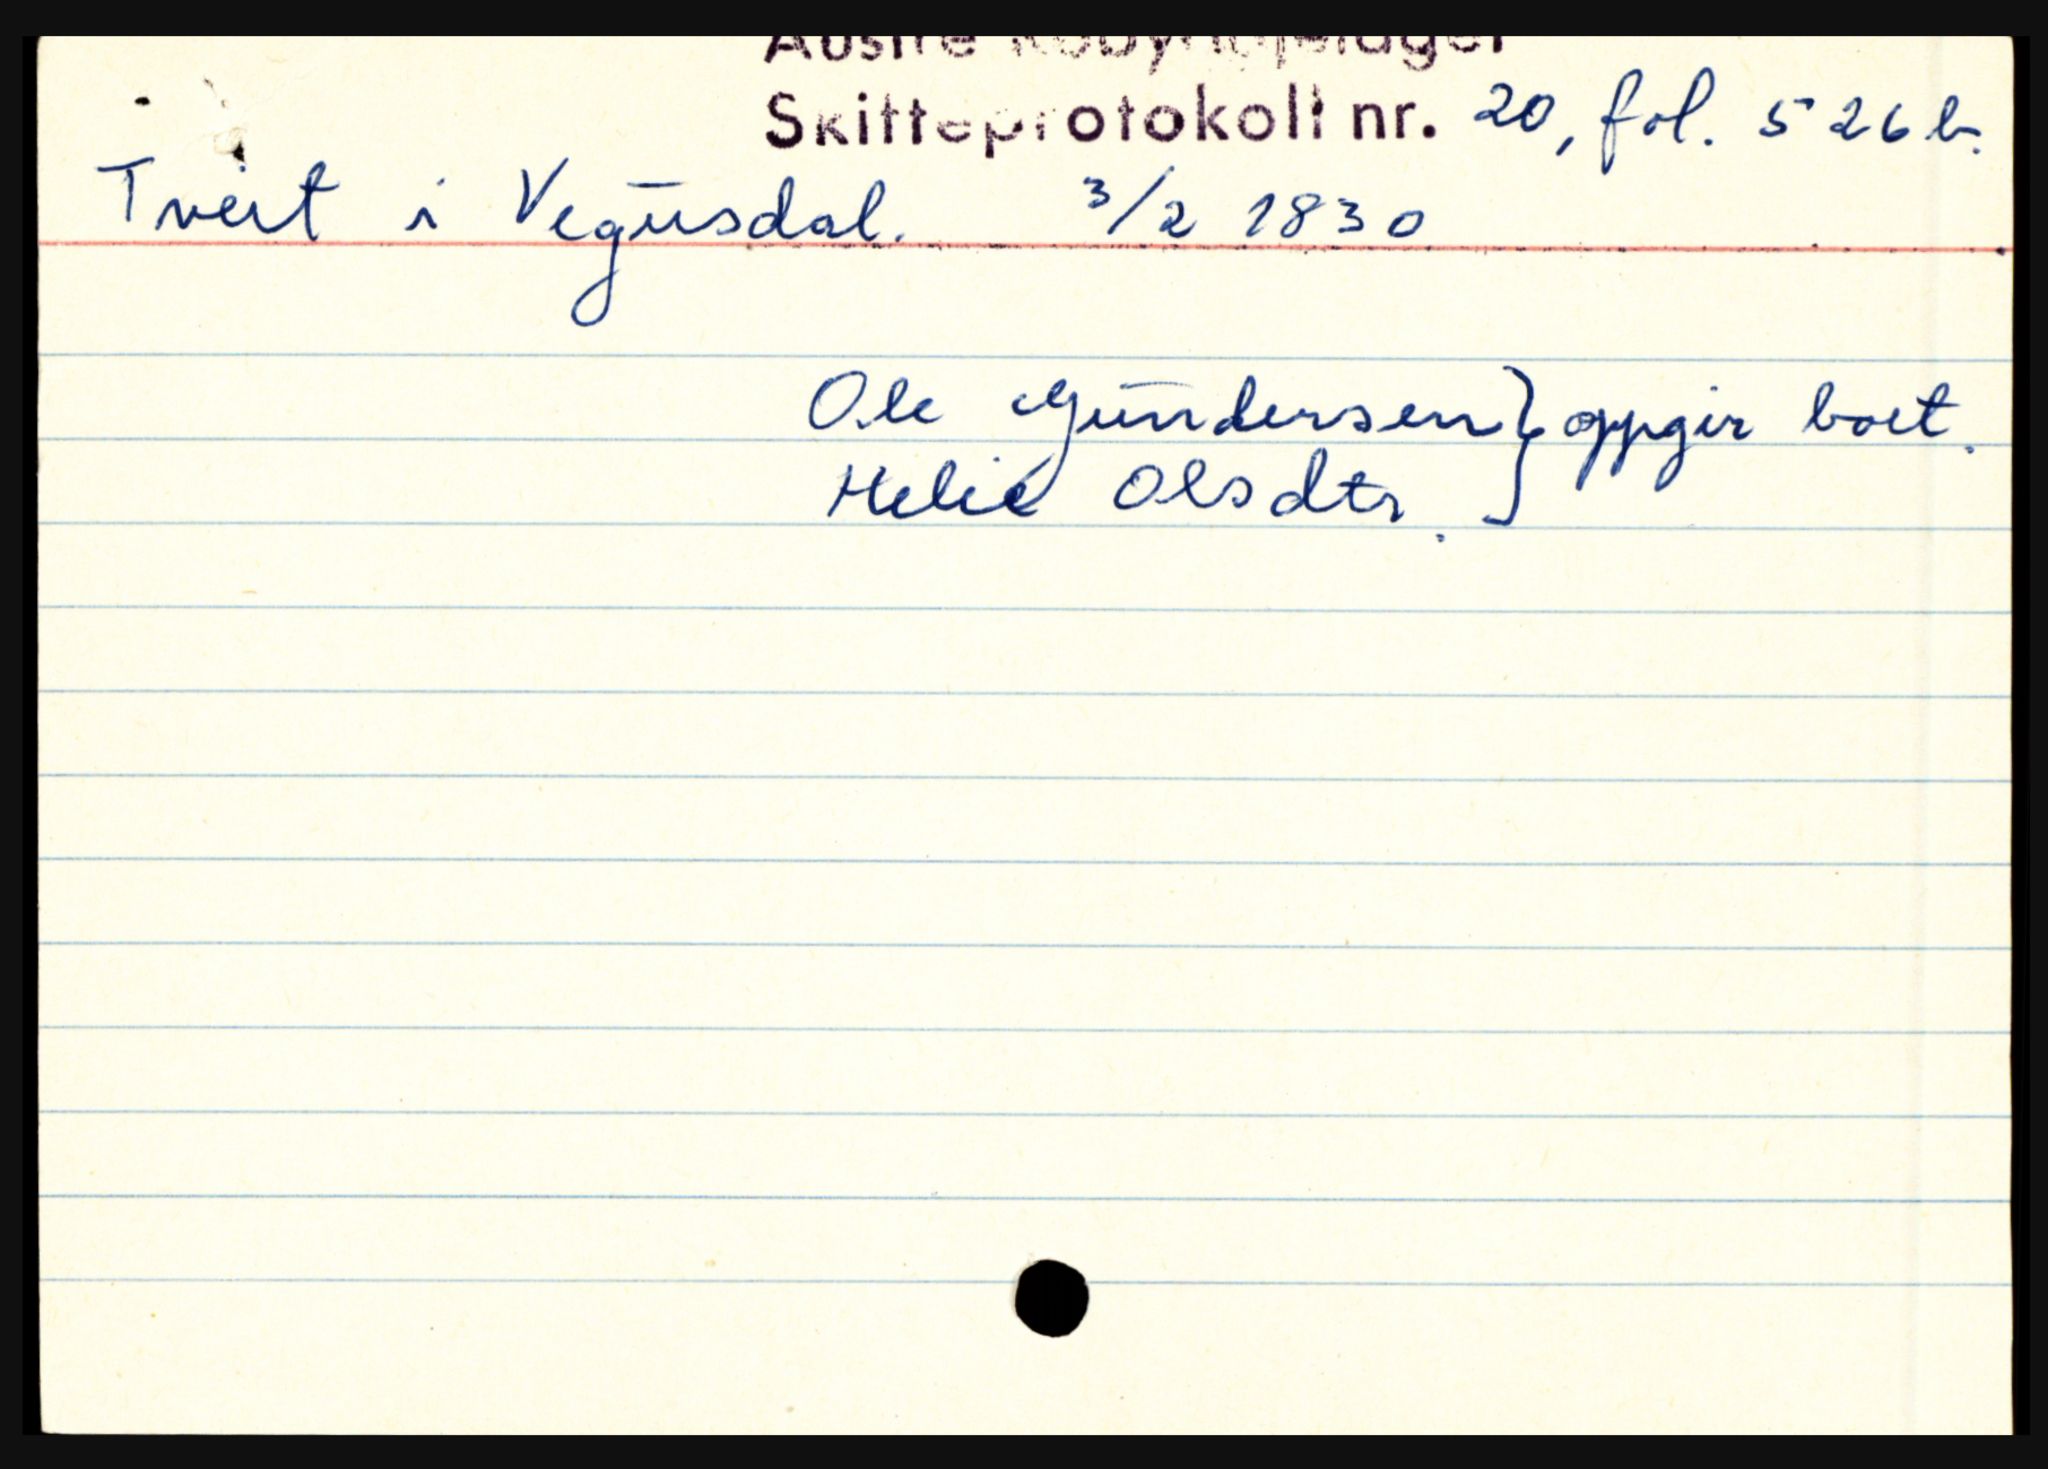 Austre Robyggjelager
Skifteprotokoll nr. 20, fol. 526 b.
Tveit i Vegusdal. 3/2 1830
Ole Gundersen } oppgir boet.
Helie Olsdtr. }